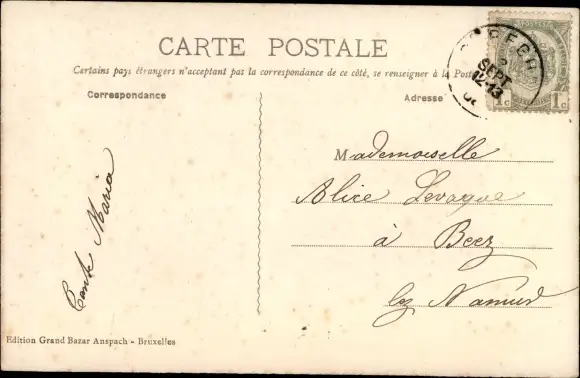 CARTE POSTALE
Certains pays étrangers n'acceptant pas la correspondance de ce côté, se renseigner à la Poste
Correspondance
Adresse
SEPT
12-13
1c 1c
Mademoiselle
Alice Levaque
à Beez
lez Namur
Tante Maria
Edition Grand Bazar Anspach - Bruxelles